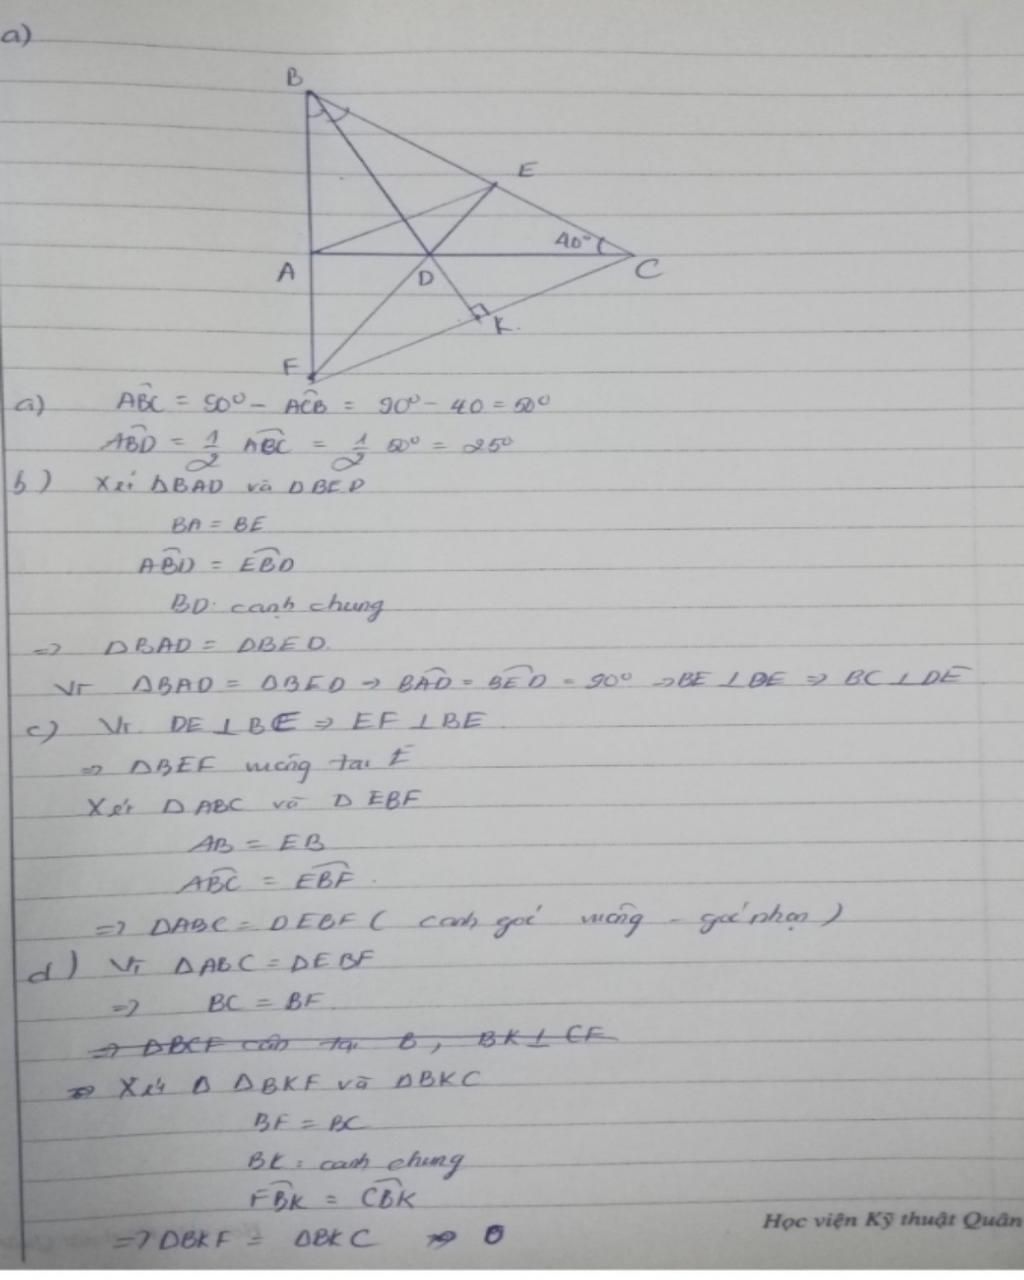 a)
B
E
40°
A
D
C
K.
F
a) ABC = 90° - ACB = 90° - 40 = 50°
ABD = 1/2 ABC = 1/2 50° = 25°
b) Xét ΔBAD và ΔBED
BA = BE
ABD = EBD
BD: cạnh chung
=> ΔBAD = ΔBED.
Vì ΔBAD = ΔBED → BAD = BED = 90° → BE ⊥ DE => BC ⊥ DE
c) Vì DE ⊥ BC => EF ⊥ BE
=> ΔBEF vuông tại E
Xét ΔABC và ΔEBF
AB = EB
ABC = EBF.
=> ΔABC = ΔEBF ( canh goć vuông - goć nhọn )
d) Vì ΔABC = ΔEBF
=> BC = BF
=> ΔBCF cân tại B, BK ⊥ CF
Xét Δ ΔBKF và ΔBKC
BF = BC
BK: canh chung
FBK = CBK
=> ΔBKF = ΔBKC
Học viện Kỹ thuật Quân